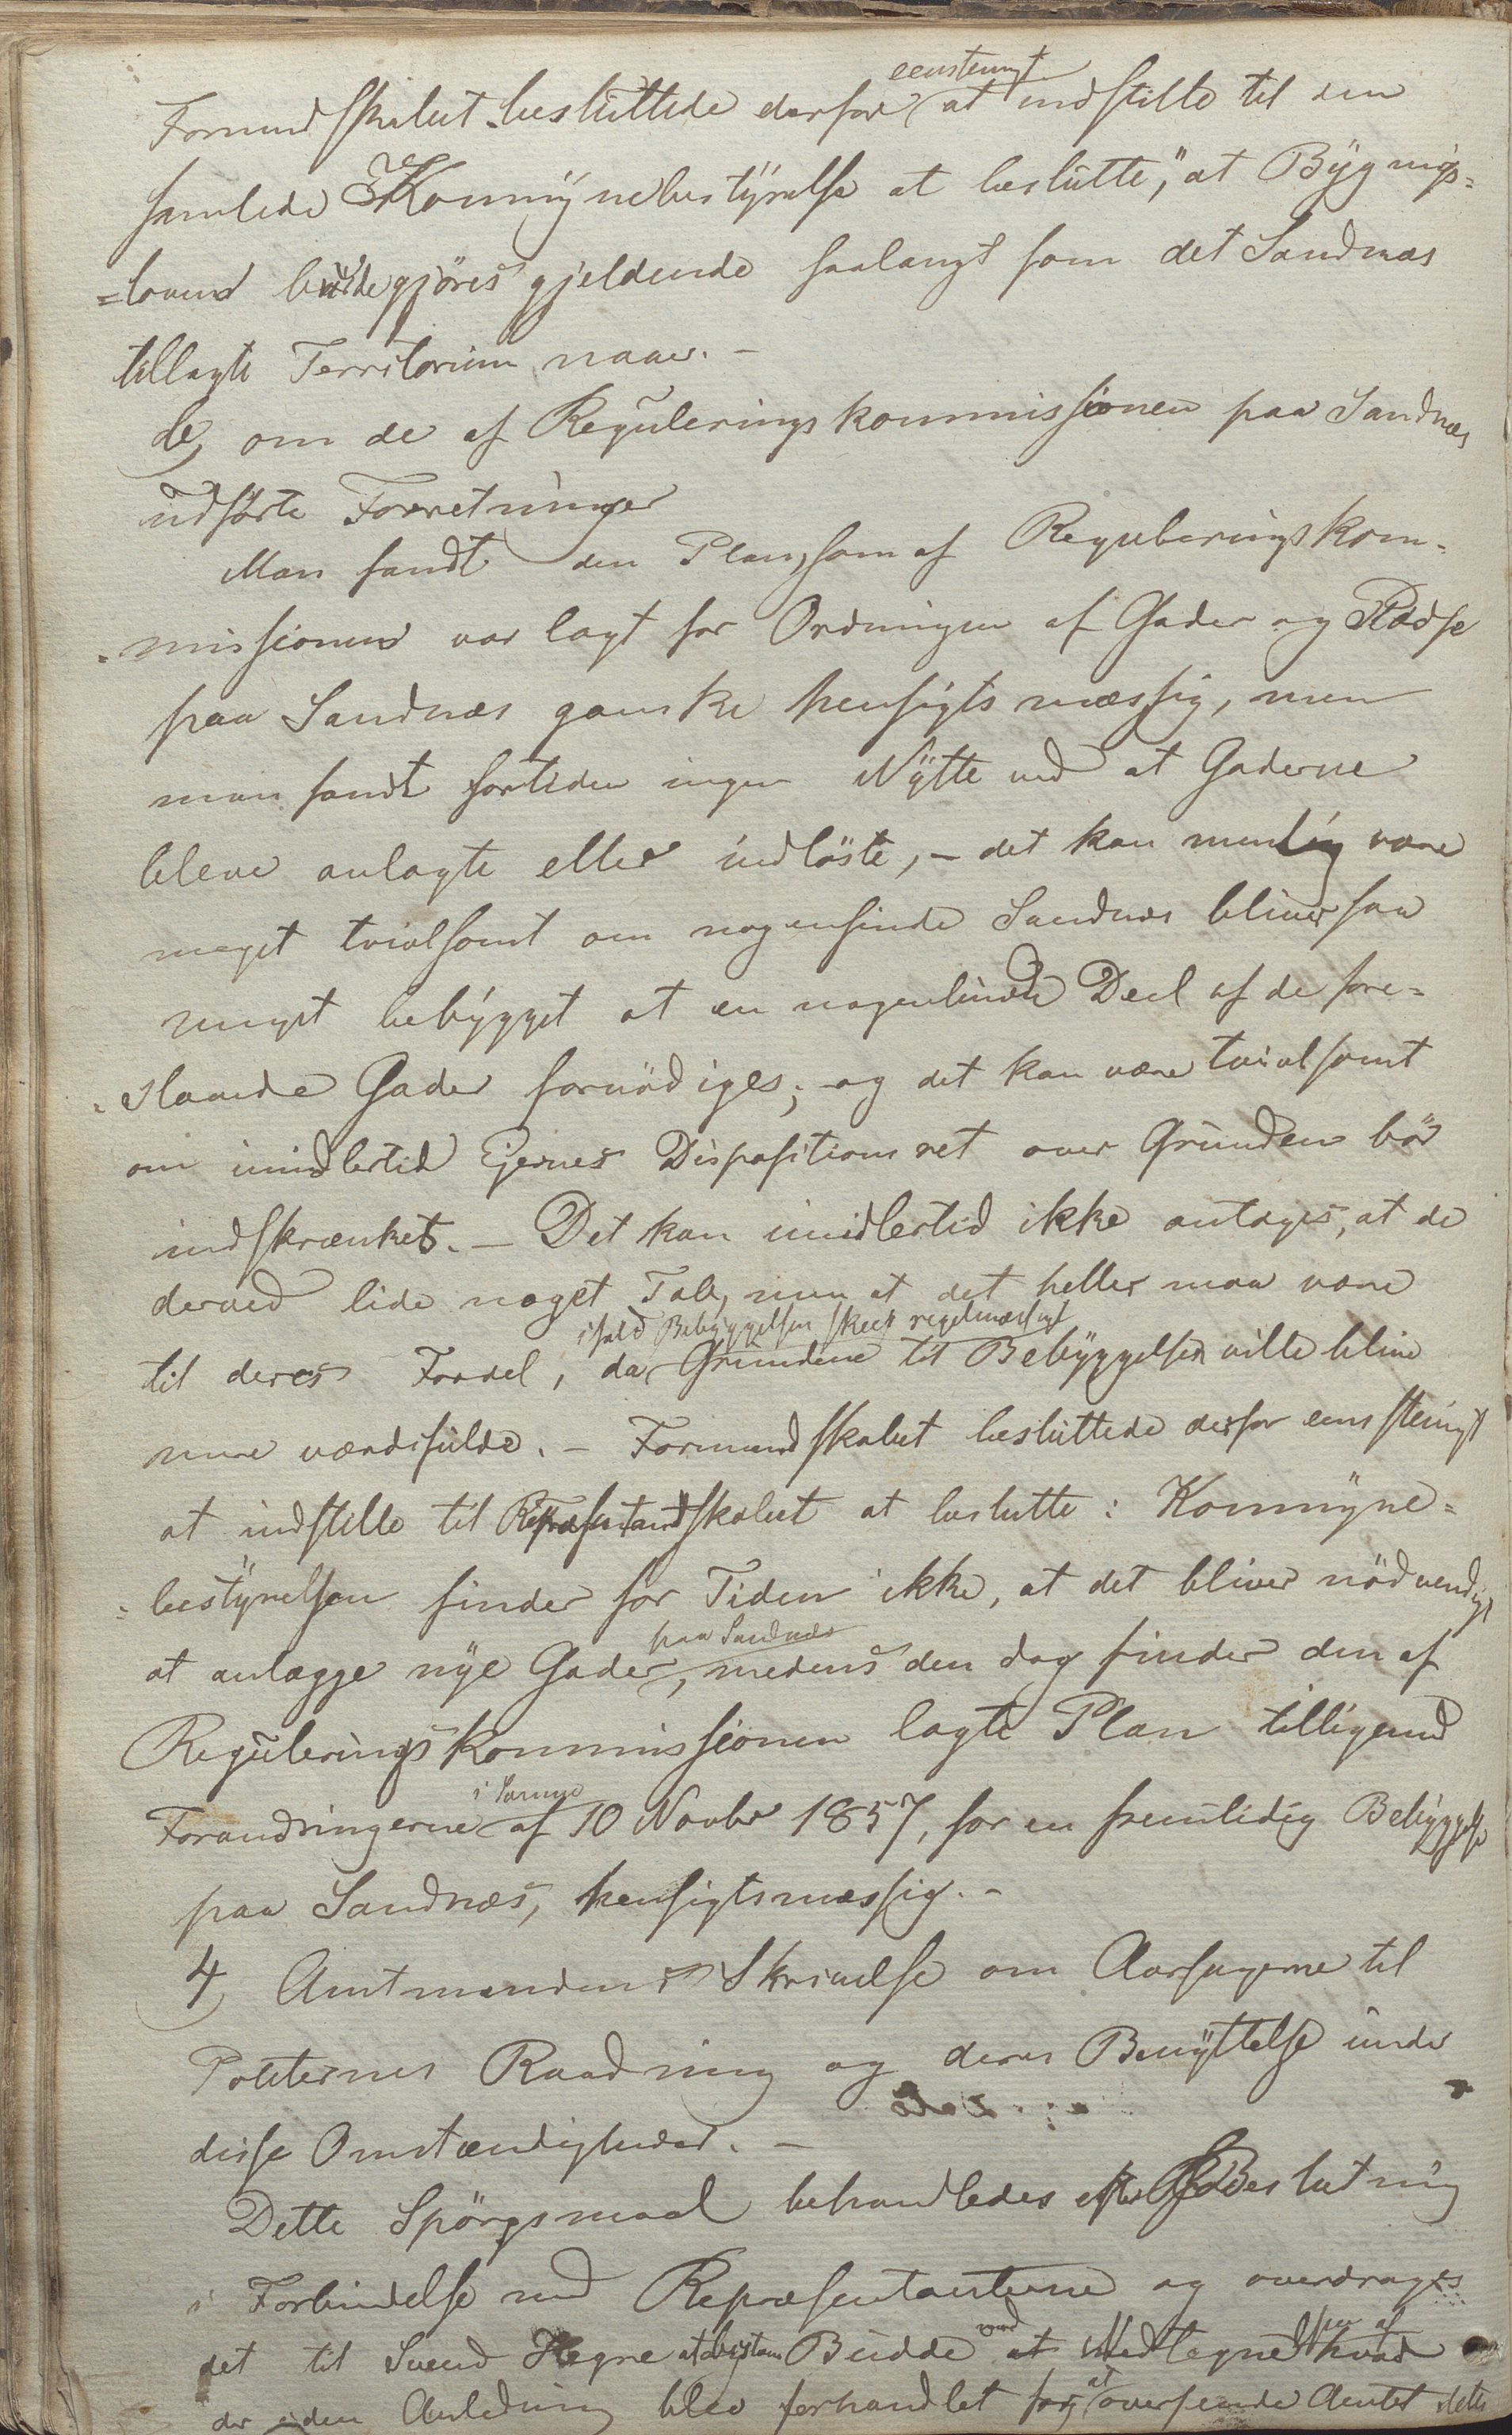 eenstemt
Formandskabet besluttede derfor at indstille til den
samlede Kommünebestÿrelse at beslutte, "at Bÿgnings=
=loven burde gjöres gjeldende saalangt som det Sandnæs
tillagte Territorium naaer. –
de, om de af Regüleringskommissionen paa Sandnæs
üdførte Forretninger
Man fandt den Plan, som af Reguleringskom=
=missionen var lagt for Ordningen af Gader og Pladse
paa Sandnæs ganske hensigtsmæssig, men
man fandt fortiden ingen Nÿtte ved at Gaderne
bleve anlagte eller indlöste, – det kan nemlig være
meget tvivlsomt om nogensinde Sandnæs bliver saa
meget bebÿgget at en nogenlunde Deel af de fore=
=slaaede Gader fornödiges; – og det kan være tvivlsomt
om imidlertid Ejernes Dispositionsret over Grunden bör
indskrænkes. – Det kan imidlertid ikke antages, at de
derved lide noget Tab, men at det heller maa være
ifald Bebÿggelsen skeer regelmæssigt
til deres Fordel, da Grundene til Bebÿggelsen ville blive
mere værdifulde. – Formandskabet besluttede derfor eenstemigt
at indstille til Repræsentantskabet at beslutte: Kommÿne=
=bestÿrelsen finder for Tiden ikke, at det bliver nödvendigt
paa Sandnæs
at anlægge nÿe Gader, medens den dog finder den af
Reguleringskommissionen lagte Plan tilligemed
i Samme
Forandringerne af 10 Novbr 1857, for en fremtidig Bebÿggelse
paa Sandnæs, hensigtsmæssig. –
4) Amtmandens Skrivelse om Aarsagerne til
Poteternes Raadning og deres Benÿttelse under
disse Omstændigheder. –
Dette Spörgsmaal behandledes efter Beslutning
i Forbindelse med Repræsentanterne og overdrages
det til Svend Hegre at bistaa Budde med at Nedtegne hvad
der i den Anledning blev forhandlet for at oversende Amtet dette